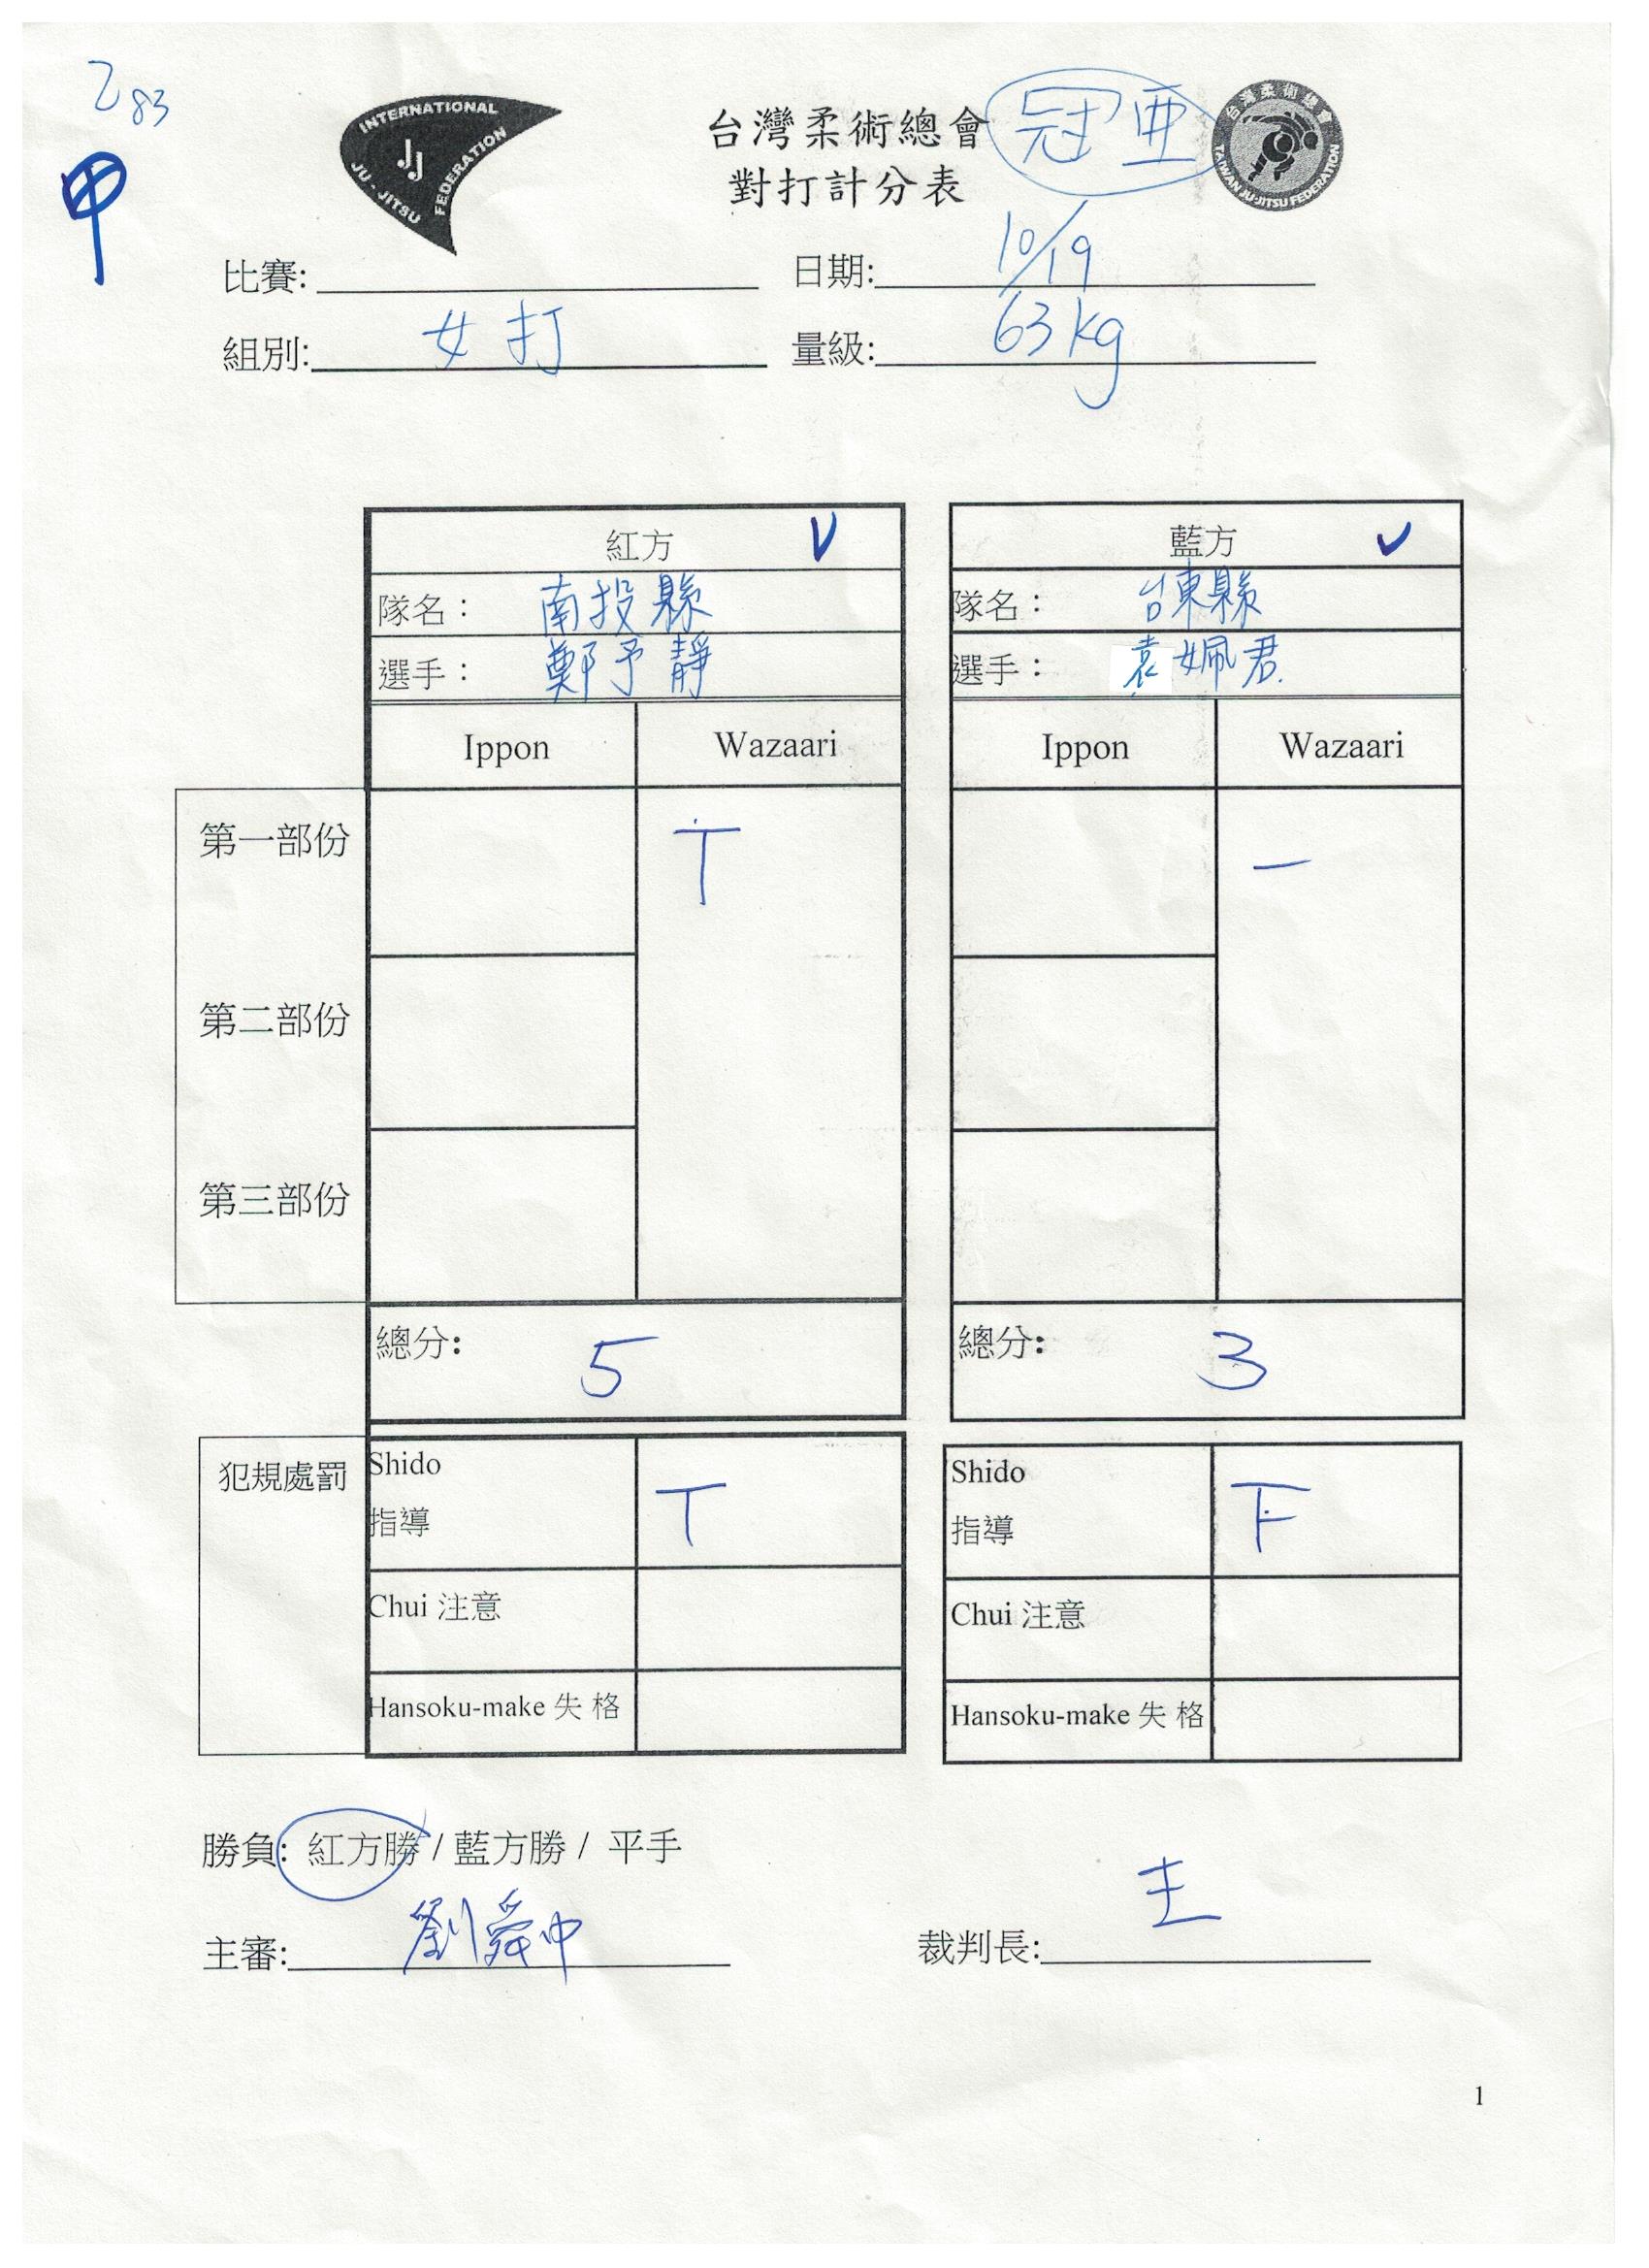 乙83
甲
INTERNATIONAL
JU-JITSU
FEDERATION
JJ
台灣柔術總會
冠亜
台灣柔術總會
TAIWAN JU-JITSU FEDERATION
對打計分表
比賽: 日期: 10/19
組別: 女打 量級: 63kg
紅方 V 藍方 V
隊名: 南投縣 隊名: 台東縣
選手: 鄭予靜 選手: 袁姵君
Ippon Wazaari Ippon Wazaari
第一部份 T 一
第二部份
第三部份
總分: 5 總分: 3
犯規處罰
Shido
指導 T
Shido
指導 F
Chui 注意 Chui 注意
Hansoku-make 失 格 Hansoku-make 失 格
勝負: 紅方勝 / 藍方勝 / 平手
主審: 劉舜中 裁判長:
1